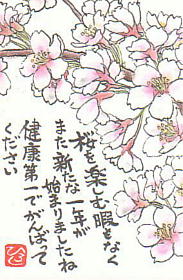 桜を楽む暇もなく
また新たな一年が
始まりましたね
健康第一でがんばって
ください